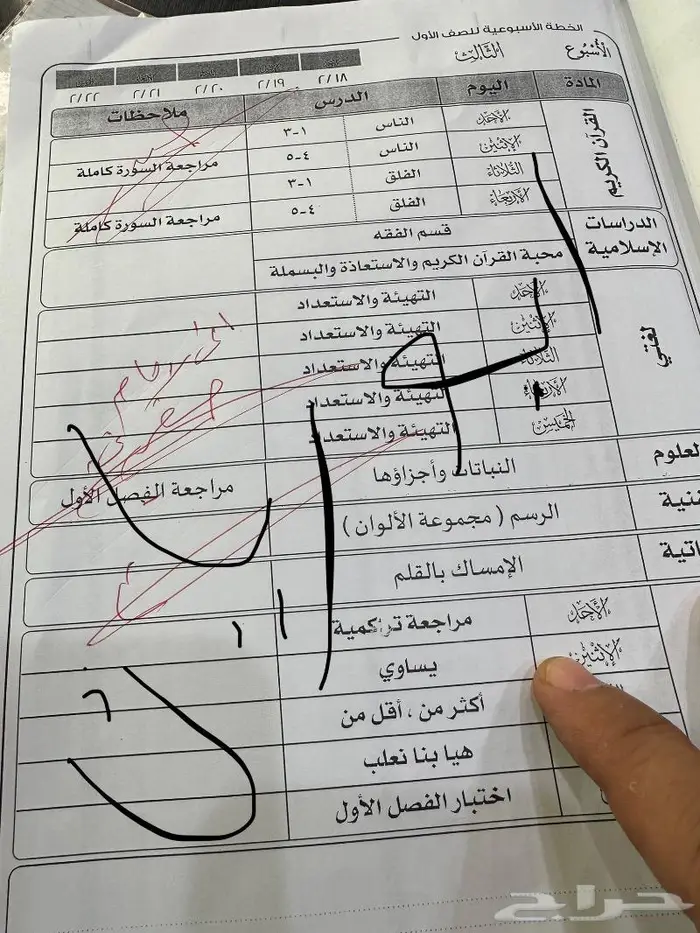 الخطة الأسبوعية للصف الأول
الأسبوع الثالث
٢/١٨ ٢/١٩ ٢/٢٠ ٢/٢١ ٢/٢٢
المادة اليوم الدرس ملاحظات
القرآن الكريم
الأحد الناس ١-٣
الإثنين الناس ٤-٥ مراجعة السورة كاملة
الثلاثاء الفلق ١-٣
الأربعاء الفلق ٤-٥ مراجعة السورة كاملة
الدراسات الإسلامية
قسم الفقه
محبة القرآن الكريم والاستعاذة والبسملة
لغتي
الأحد التهيئة والاستعداد
الإثنين التهيئة والاستعداد
الثلاثاء التهيئة والاستعداد
الأربعاء التهيئة والاستعداد
الخميس التهيئة والاستعداد
لعلوم النباتات وأجزاؤها مراجعة الفصل الأول
نية الرسم ( مجموعة الألوان )
اتية الإمساك بالقلم
الأحد مراجعة تراكمية
الإثنين يساوي
أكثر من ، أقل من
هيا بنا نعلب
اختبار الفصل الأول
حراج